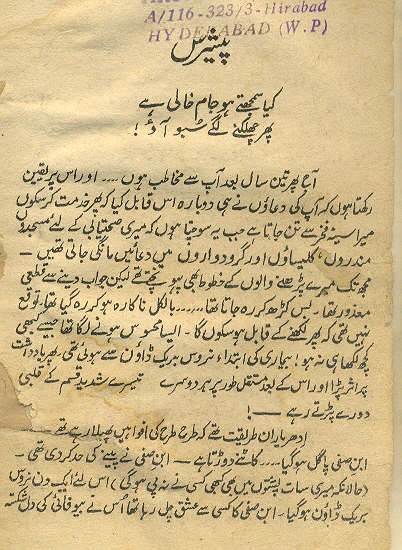 A/116-323/3-Hirabad
HYDERABAD (W.P)
پیشرس
کیا سمجھتے ہو جام خالی ہے
پھر چھلکنے لگے سبو آؤ!
آج پھر تین سال بعد آپ سے مخاطب ہوں .... اور اس پر یقین
رکھتا ہوں کہ آپ کی دعاؤں نے ہی دوبارہ اس قابل کیا کہ پھر خدمت کر سکوں
میرا سینہ فخر سے تن جاتا ہے جب یہ سوچتا ہوں کہ میری صحتیابی کے لئے مسجدوں
مندروں، کلیساؤں اور گرودواروں میں دعائیں مانگی جاتی تھیں ــ
مجھ تک میرے پڑھنے والوں کے خطوط بھی پہونچتے تھے لیکن جواب دینے سے قطعی
معذور تھا ــ بس کڑھ کر رہ جاتا تھا....... بالکل ناکارہ ہو کر رہ گیا تھا، توقع
نہیں تھی کہ پھر لکھنے کے قابل ہو سکوں گا ــ ایسا محسوس ہونے لگا تھا جیسے کبھی
کچھ لکھا ہی نہ ہو! بیماری کی ابتداء نروس بریک ڈاؤن سے ہوئی تھی ــ پھر یادداشت
پر اثر پڑا اور اس کے بعد مستقل طور پر ہر دوسرے تیسرے شدید قسم کے قلبی
دورے پڑتے رہے ــ !
ادھر یاران طریقت تھے کہ طرح طرح کی افواہیں پھیلا رہے تھے ــ
ابن صفی پاگل ہو گیا .... کاٹنے دوڑتا ہے ــ ابن صفی نے پینے کی حد کر دی تھی ــ
(حالانکہ میری سات پشتوں میں بھی کبھی کسی نے نہ پی ہو گی) اس لئے ایک دن نروس
بریک ڈاؤن ہو گیا ــ ابن صفی کا کسی سے عشق چل رہا تھا اُس نے بیوفائی کی دل شکستہ